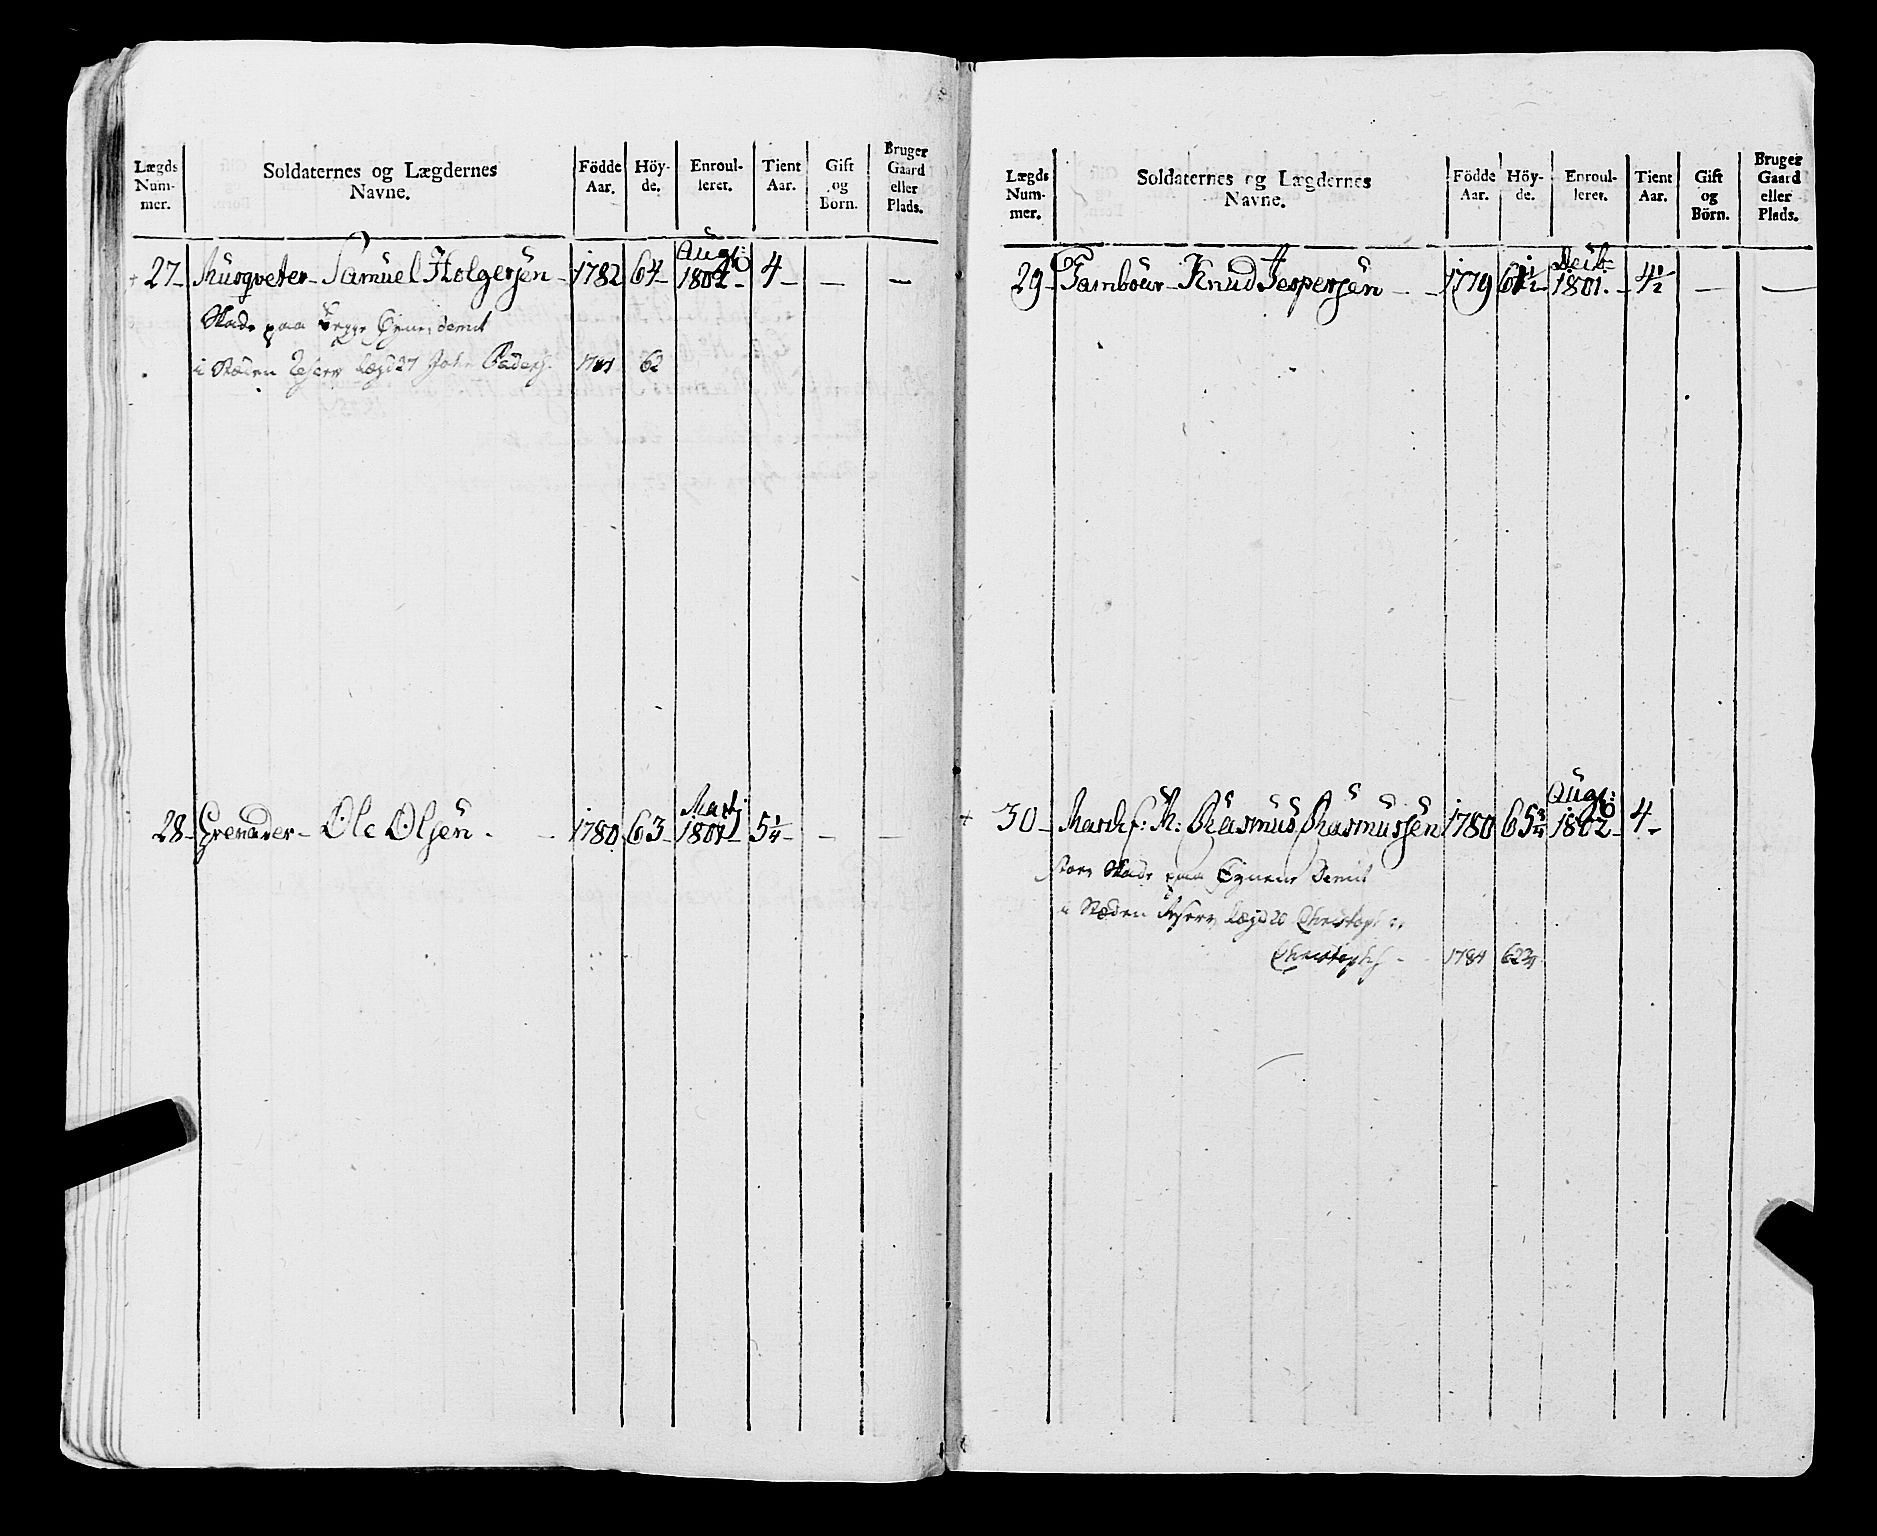 Lægds Num- mer. Soldaternes og Lægdernes Navne. Födde Aar. Höy- de. Enroul- leret. Tient Aar. Gift og Börn. Bruger Gaard eller Plads.
Augt:
+ 27 Musqveter - Samuel Holgersen - 1782 64 - 1802 - 4 - — —
Skade paa begge Øyne, demit
i Stæden Reserv Lægd 27 Joh. Peders. 62
Marti
28 - Grenader - Ole Olsen - 1780 63 - 1801 - 5 1/4 - — —
Lægds Num- mer. Soldaternes og Lægdernes Navne. Födde Aar. Höy- de. Enroul- leret. Tient Aar. Gift og Börn. Bruger Gaard eller Plads.
29 - Tambour - Knud Jespersen - 1779 61 1/2 1801. - 4 1/2 — —
Augt:
+ 30 - Rasmus Rasmussen 1780 65 3/4 1802 - 4 -
Skade paa Øynene Demit
i Stæden Reserv Lægd 20 Christoph
Christophs - 1784 62 3/4